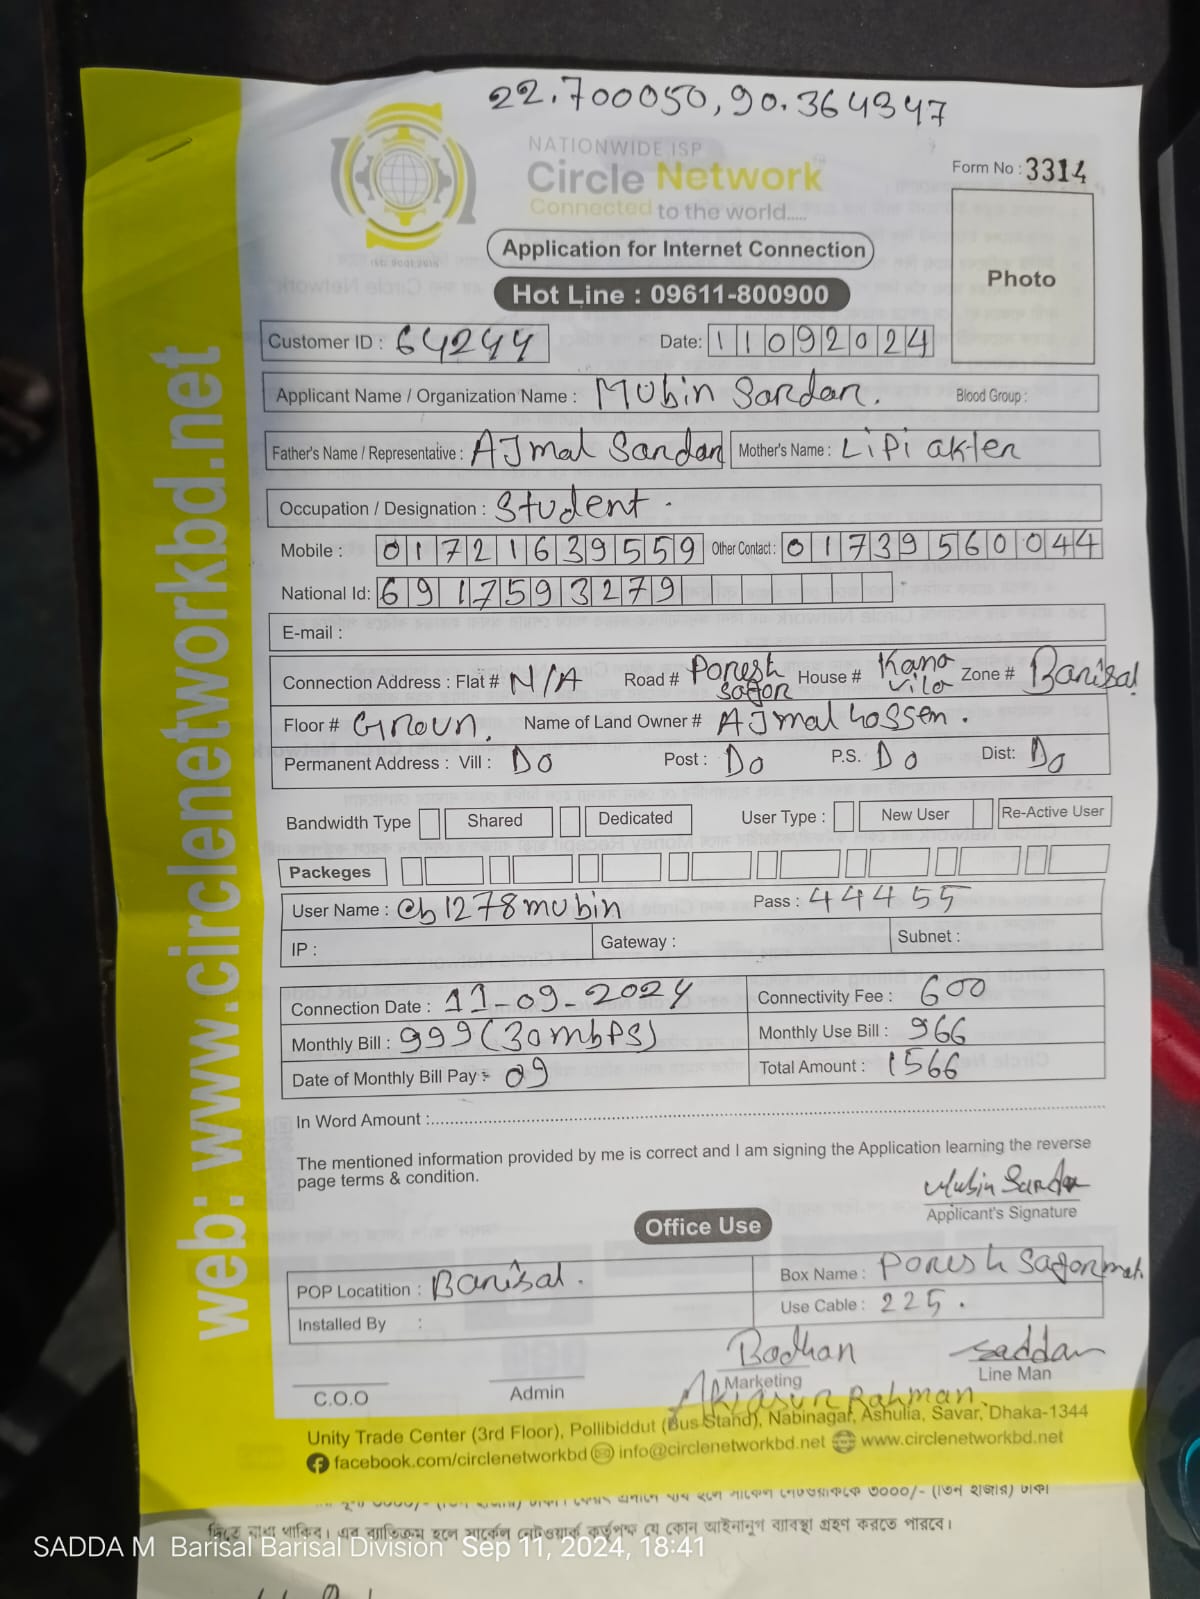 22.700050,90.364347
NATIONWIDE ISP
Circle Network
Connected to the world.....
ISO: 9001:2015
Form No : 3314
Photo
Application for Internet Connection
Hot Line : 09611-800900
Customer ID : 64244 Date: 11092024
Applicant Name / Organization Name : Mubin Sardar. Blood Group :
Father's Name / Representative : AJmal Sardar Mother's Name : Lipi akter
Occupation / Designation : Student .
Mobile : 01721639559 Other Contact : 01739560044
National Id: 6917593279
E-mail :
Connection Address : Flat # N/A Road # Poresh sagor House # Kana vila Zone # Barisal
Floor # Groun. Name of Land Owner # AJmal hossen.
Permanent Address : Vill : Do Post : Do P.S. Do Dist: Do
Bandwidth Type Shared Dedicated User Type : New User Re-Active User
Packeges
User Name : cb1278mubin Pass : 44455
IP : Gateway : Subnet :
Connection Date : 11-09-2024 Connectivity Fee : 600
Monthly Bill : 999(30mbps) Monthly Use Bill : 966
Date of Monthly Bill Pay : 09 Total Amount : 1566
In Word Amount :
The mentioned information provided by me is correct and I am signing the Application learning the reverse
page terms & condition.
Mubin Sardar
Applicant's Signature
Office Use
POP Locatition : Barisal. Box Name : Poresh Sagor mat
Installed By : Use Cable : 225.
Badhan saddam
C.O.O Admin Marketing Line Man
Rahman.
Unity Trade Center (3rd Floor), Pollibiddut (Bus Stand), Nabinagar, Ashulia, Savar, Dhaka-1344
facebook.com/circlenetworkbd info@circlenetworkbd.net www.circlenetworkbd.net
web: www.circlenetworkbd.net
৩০০০/- (তিন হাজার) টাকা
দিতে বাধ্য থাকিব। এর ব্যতিক্রম হলে সার্কেল নেটওয়ার্ক কর্তৃপক্ষ যে কোন আইনানুগ ব্যবস্থা গ্রহণ করতে পারবে।
SADDA M Barisal Barisal Division Sep 11, 2024, 18:41